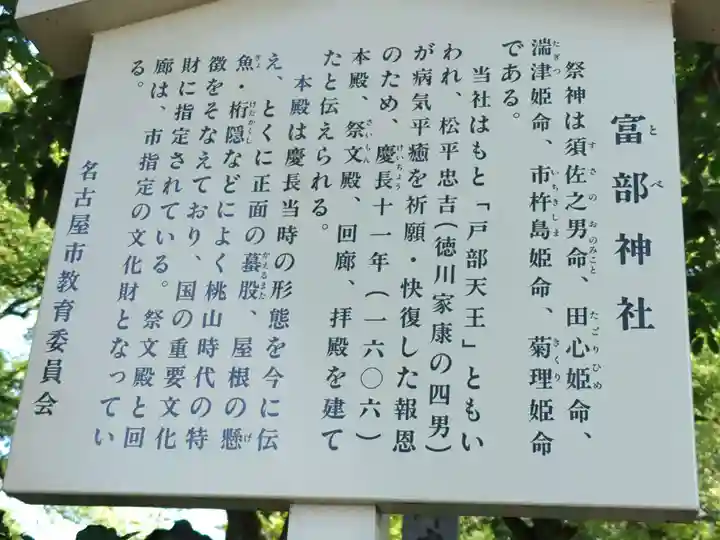 富部神社
祭神は須佐之男命、田心姫命、
湍津姫命、市杵島姫命、菊理姫命
である。
当社はもと「戸部天王」ともい
われ、松平忠吉(徳川家康の四男)
が病気平癒を祈願・快復した報恩
のため、慶長十一年(一六〇六)
本殿、祭文殿、回廊、拝殿を建て
たと伝えられる。
本殿は慶長当時の形態を今に伝
え、とくに正面の蟇股、屋根の懸
魚・桁隠などによく桃山時代の特
徴をそなえており、国の重要文化
財に指定されている。祭文殿と回
廊は、市指定の文化財となってい
る。
名古屋市教育委員会